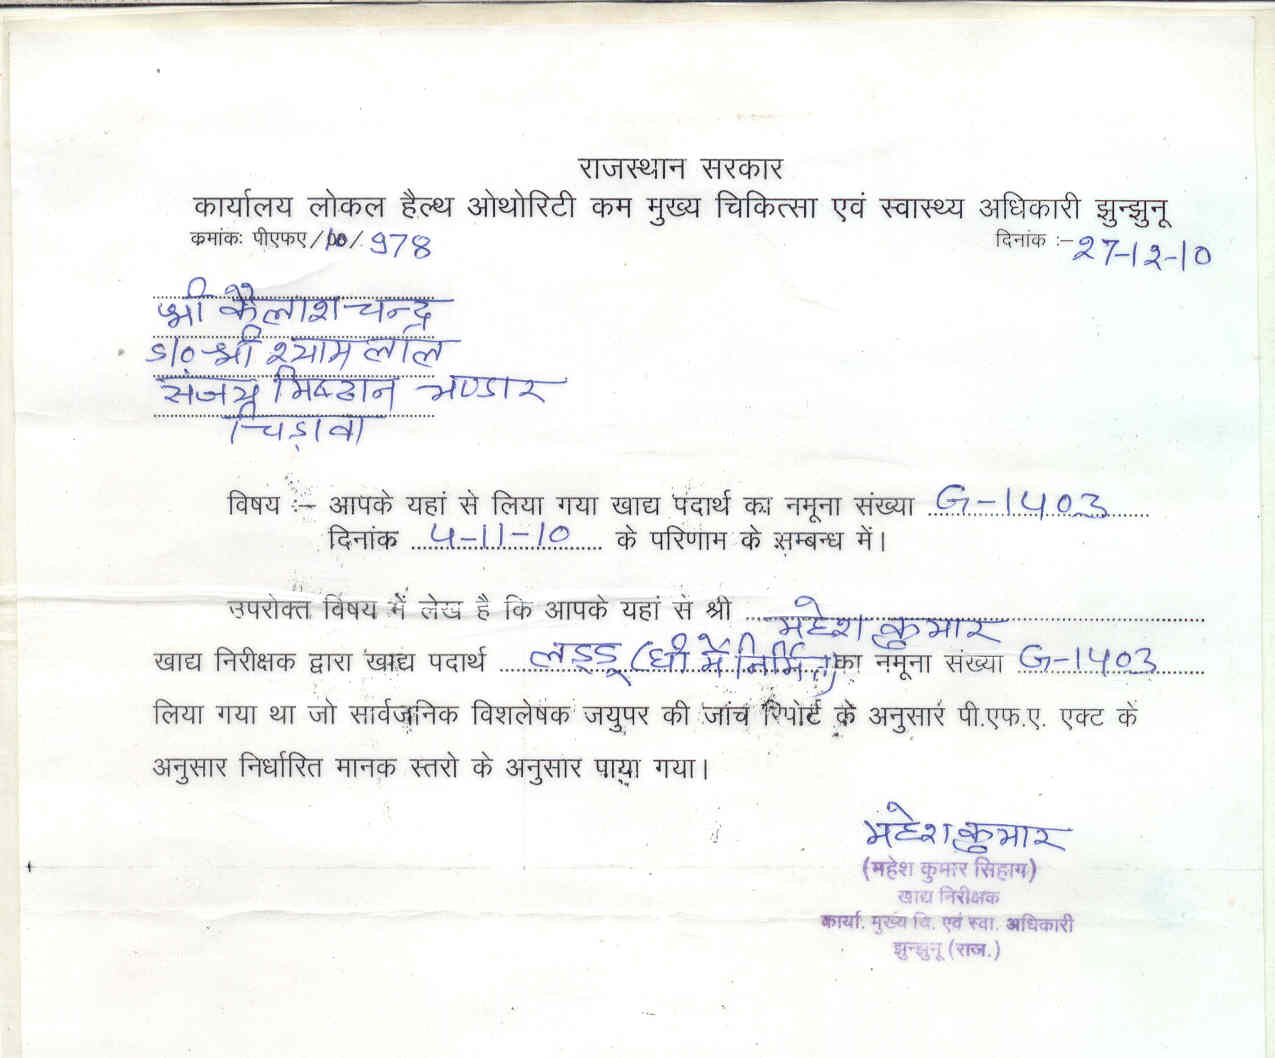 राजस्थान सरकार
कार्यालय लोकल हैल्थ ओथोरिटी कम मुख्य चिकित्सा एवं स्वास्थ्य अधिकारी झुन्झुनू
कमांकः पीएफए/10/978
दिनांक :- 27-12-10
श्री कैलाश चन्द्र
S/o श्री श्याम लाल
संजय मिष्ठान भण्डार
चिड़ावा
विषय :- आपके यहां से लिया गया खाद्य पदार्थ का नमूना संख्या G-1403
दिनांक 4-11-10 के परिणाम के सम्बन्ध में।
उपरोक्त विषय में लेख है कि आपके यहां से श्री महेश कुमार
खाद्य निरीक्षक द्वारा खाद्य पदार्थ लड्डू (घी में निर्मित) का नमूना संख्या G-1403
लिया गया था जो सार्वजनिक विशलेषक जयुपर की जांच रिपोर्ट के अनुसार पी.एफ.ए. एक्ट के
अनुसार निर्धारित मानक स्तरो के अनुसार पाया गया।
महेश कुमार
(महेश कुमार सिहाग)
खाद्य निरीक्षक
कार्या. मुख्य चि. एवं स्वा. अधिकारी
झुन्झुनू (राज.)